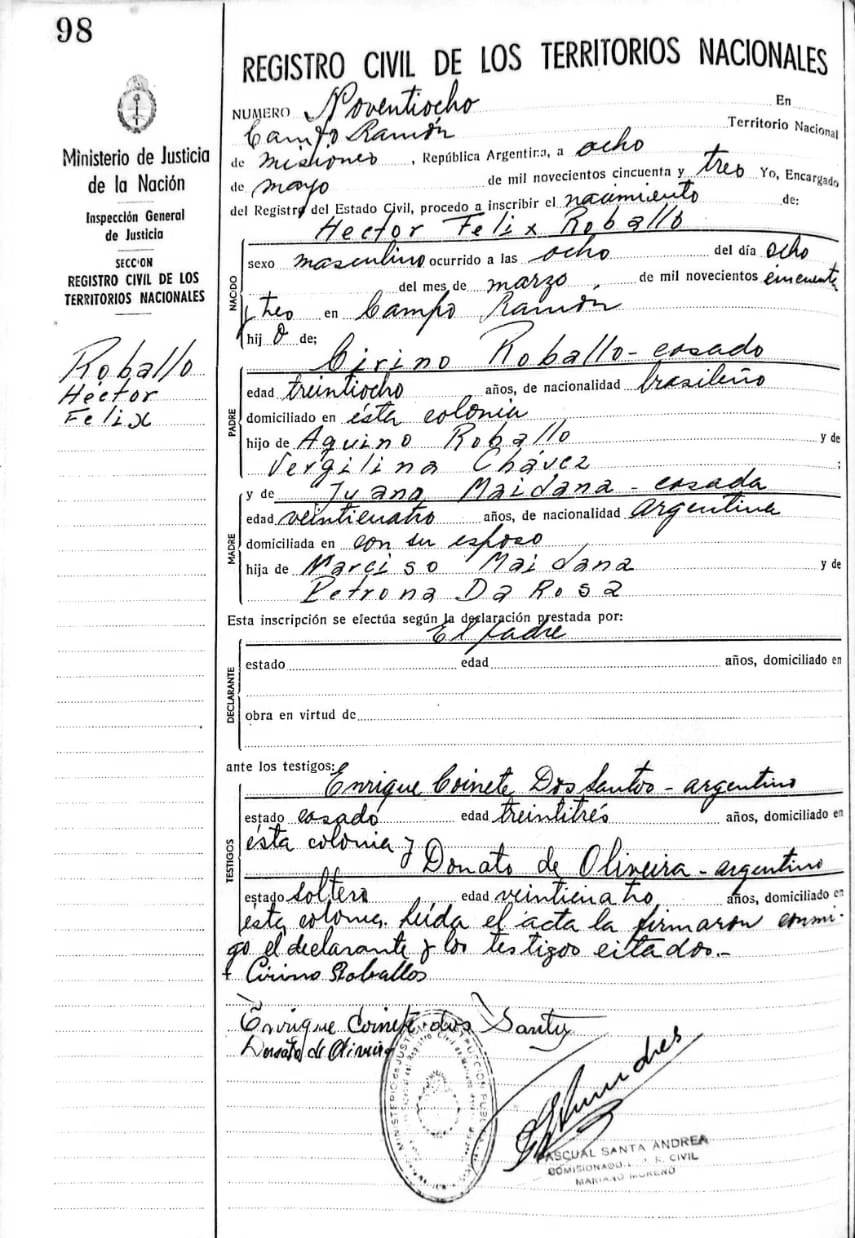 98
Ministerio de Justicia
de la Nación
Inspección General
de Justicia
SECCION
REGISTRO CIVIL DE LOS
TERRITORIOS NACIONALES
Roballo
Héctor
Felix
REGISTRO CIVIL DE LOS TERRITORIOS NACIONALES
NUMERO Noventiocho En
Campo Ramón Territorio Nacional
de misiones, República Argentina, a ocho
de mayo de mil novecientos cincuenta y tres Yo, Encargado
del Registro del Estado Civil, procedo a inscribir el nacimiento de:
Hector Felix Roballo
NACIDO
sexo masculino ocurrido a las ocho del día ocho
del mes de marzo de mil novecientos cincuenta
y tres en Campo Ramón
hij o de;
Cirino Roballo - casado
PADRE
edad treintiocho años, de nacionalidad brasileño
domiciliado en ésta colonia
hijo de Aquino Roballo y de
Vergilina Chávez ;
y de Juana Maidana - casada
MADRE
edad veinticuatro años, de nacionalidad argentina
domiciliada en con su esposo
hija de Narciso Maidana y de
Petrona Da Rosa
Esta inscripción se efectúa según la declaración prestada por:
El padre
DECLARANTE
estado edad años, domiciliado en
obra en virtud de
ante los testigos:
Enrique Coinete Dos Santos - argentino
TESTIGOS
estado casado edad treintitrés años, domiciliado en
ésta colonia y
Donato de Oliveira - argentino
estado soltero edad veinticuatro años, domiciliado en
ésta colonia. Leída el acta la firmaron conmi-
go el declarante y los testigos citados.-
+ Cirino Roballos
Enrique Coinete dos Santos
Donato de Oliveira
MINISTERIO DE JUSTICIA INSTRUCCION PUBLICA
PASCUAL SANTA ANDREA
COMISIONADO R. CIVIL
MARIANO MORENO